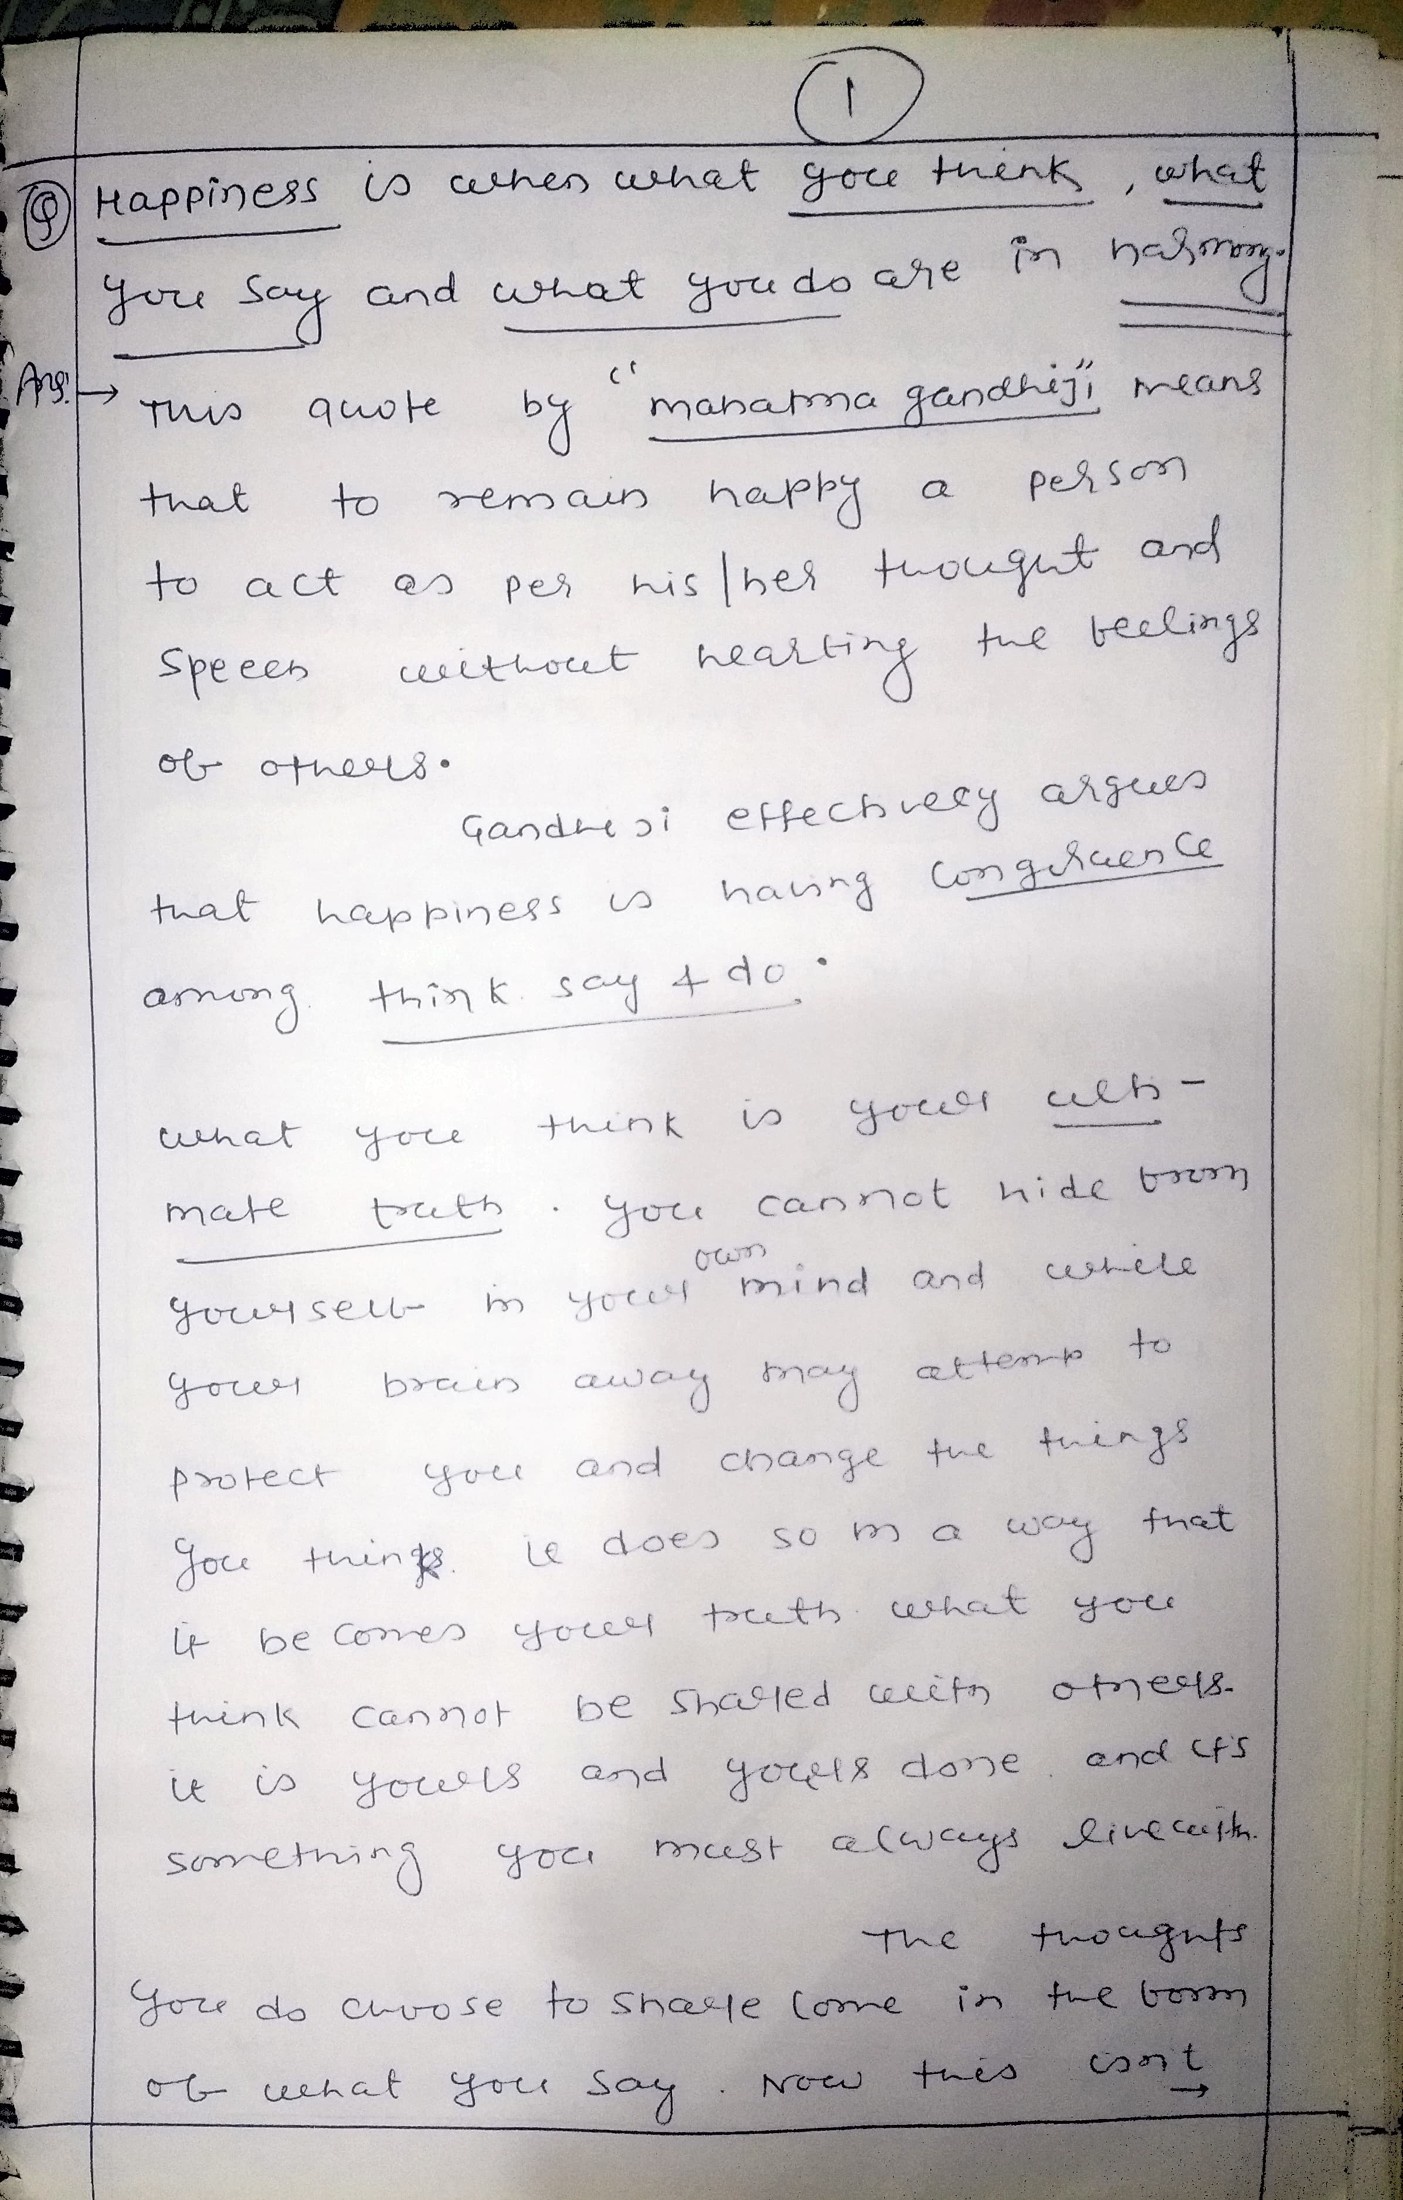 1
Q Happiness is when what you think, what
you say and what you do are in harmony.
Ans. → This quote by "mahatma gandhiji" means
that to remain happy a person
to act as per his/her thought and
speech without hearting the feelings
of others.
Gandhiji effectively argues
that happiness is having Congruence
among think say & do.
what you think is your ulti-
mate truth. you cannot hide from
own
yourself in your mind and while
your brain away may attemp to
protect you and change the things
you things. it does so in a way that
it becomes your truth. what you
think cannot be shared with others.
it is yours and yours alone. and it's
something you must always live with.
The thoughts
you do choose to share come in the form
of what you say. Now this isn't
→